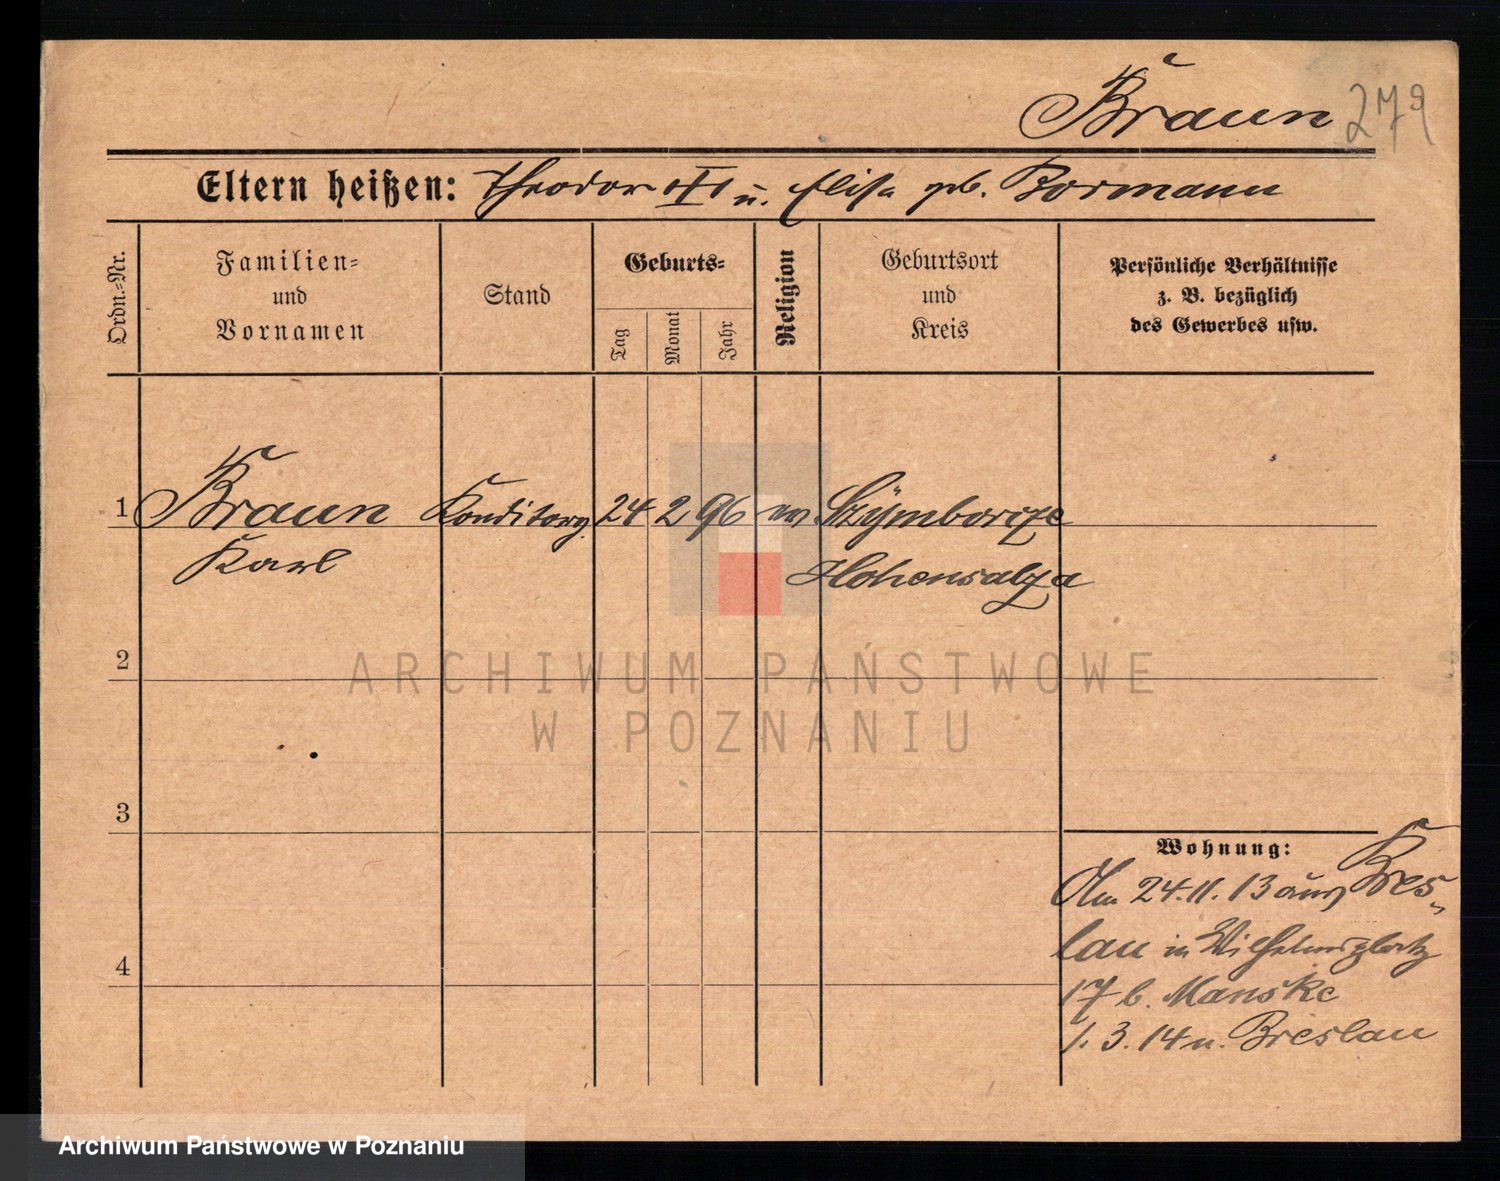 Braun 279
Eltern heißen: Theodor u. Elise geb. Bormann
Ordn.-Nr.
Familien-
und
Vornamen
Stand
Geburts-
Tag
Monat
Jahr
Religion
Geburtsort
und
Kreis
Persönliche Verhältnisse
z. B. bezüglich
des Gewerbes usw.
1 Braun Konditorg. 24 2 96 Szymborze
Karl Hohensalza
2
ARCHIWUM PAŃSTWOWE
W POZNANIU
3
Wohnung:
Am 24.11.13 aus Bres-
lau in Wilhelmsplatz
4
17 b. Manske
1.3.14 n. Breslau
Archiwum Państwowe w Poznaniu